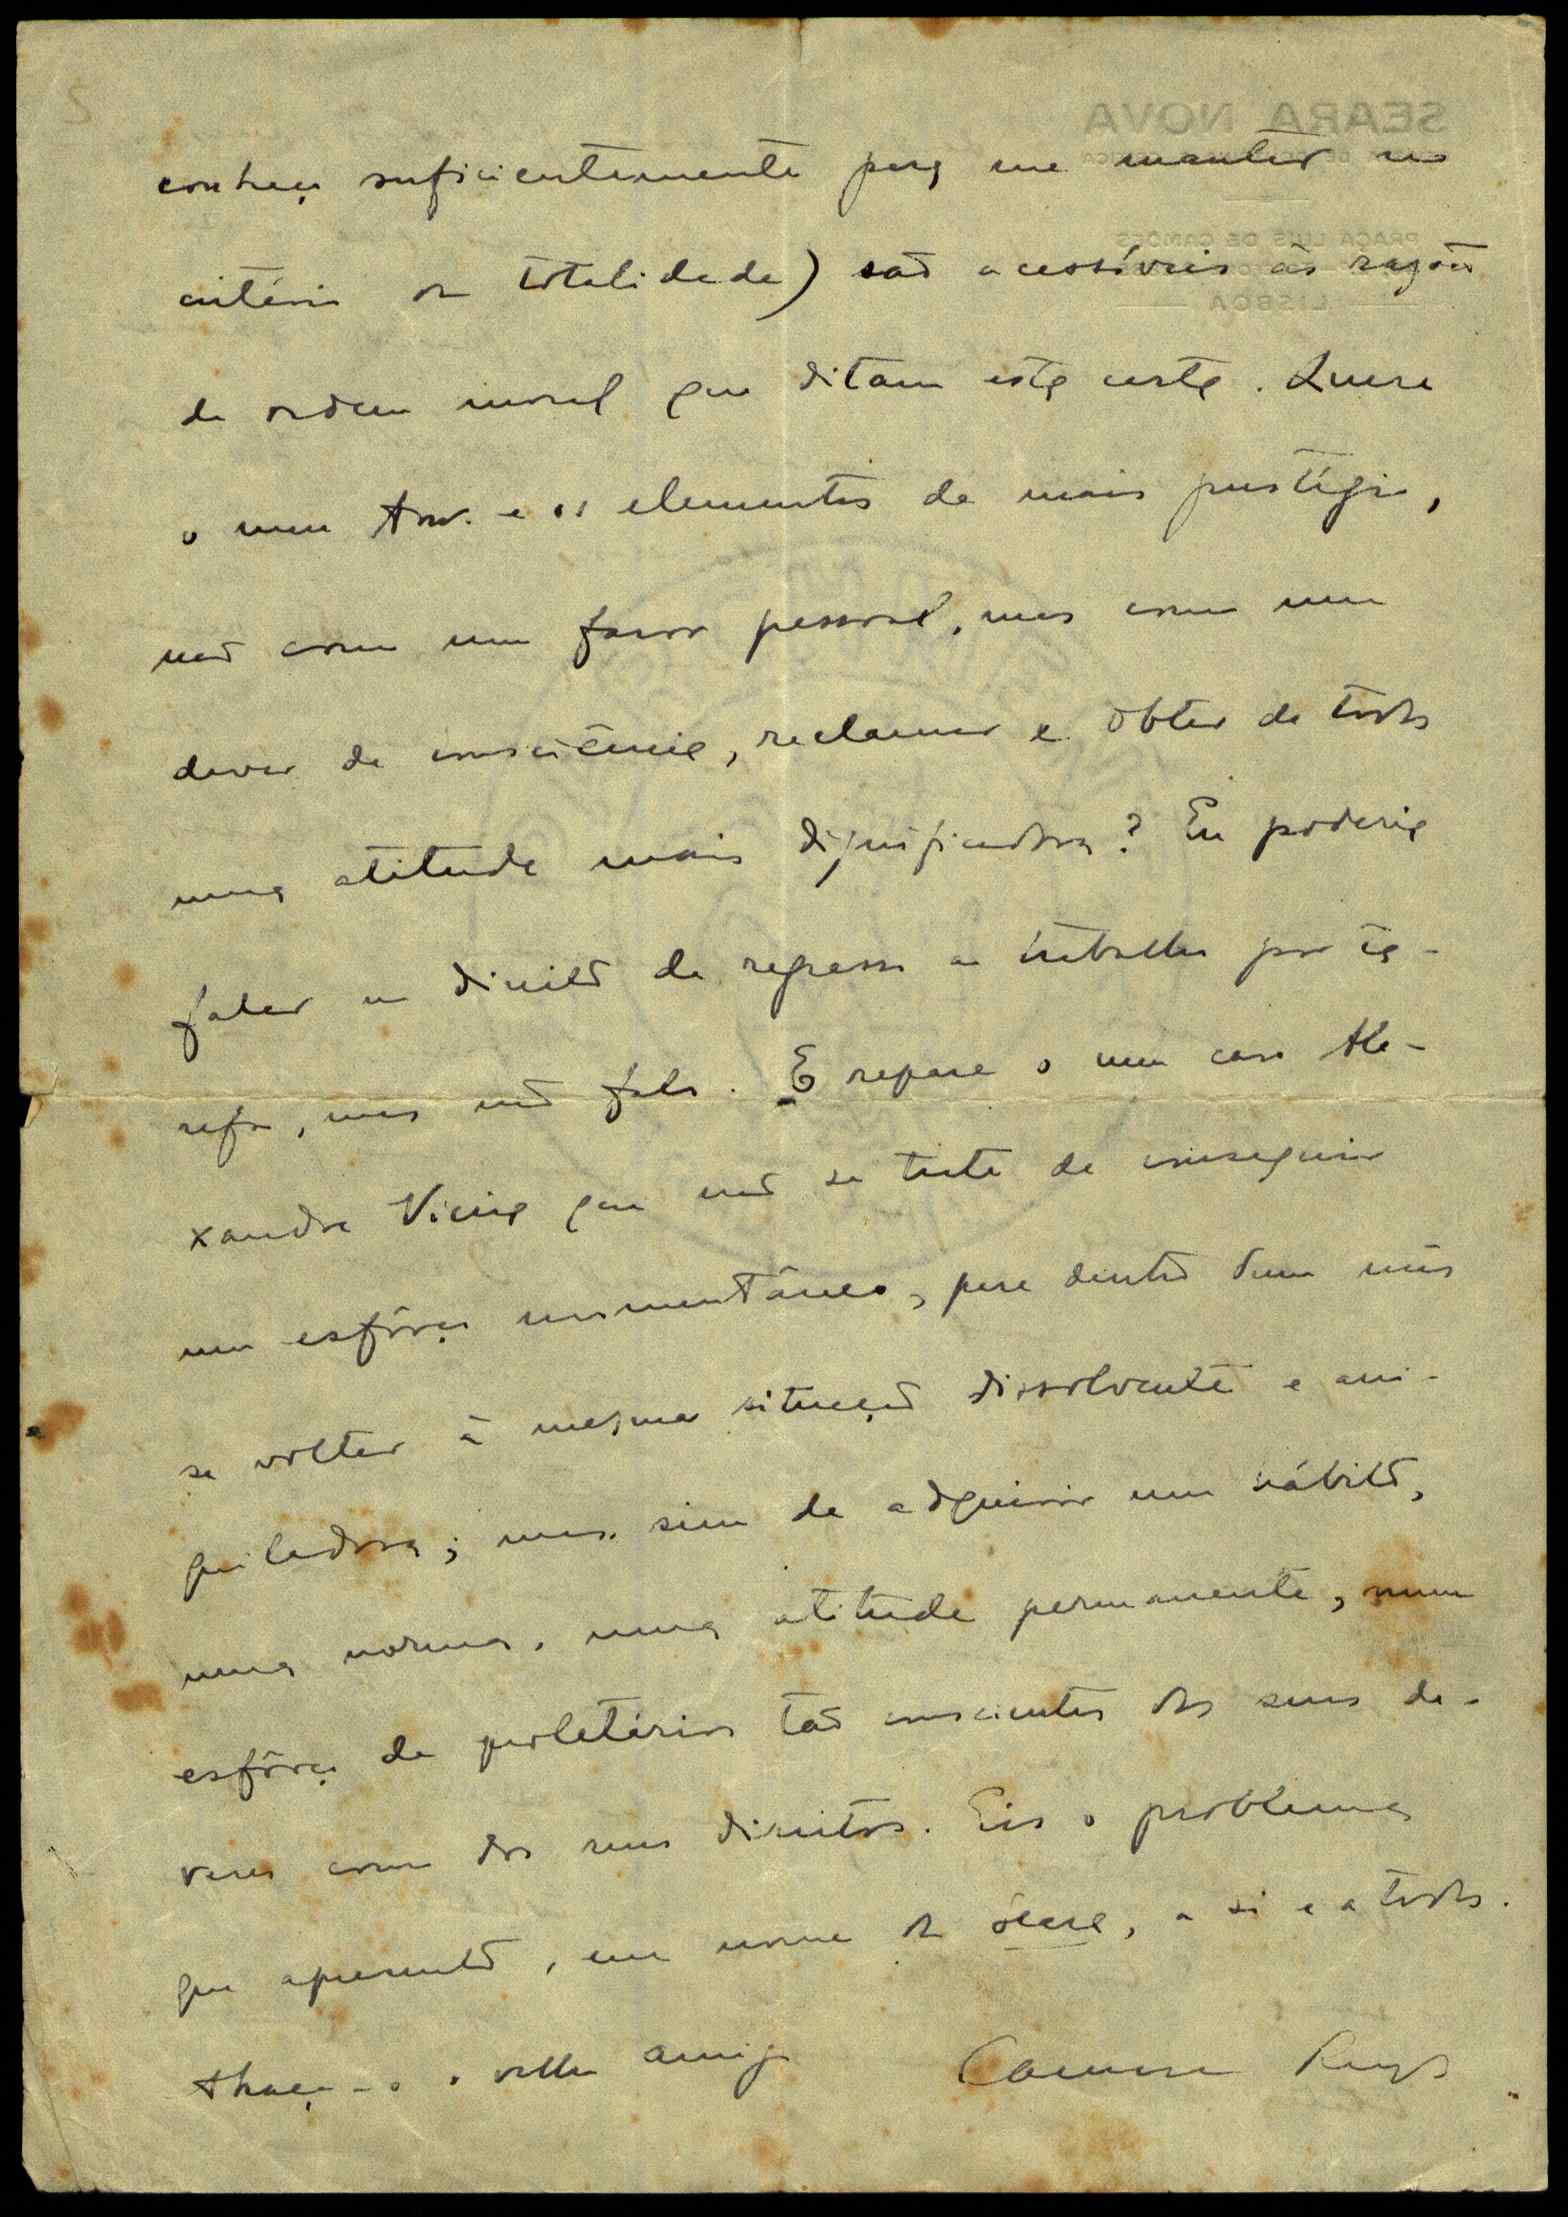 conheço suficientemente para me manter no
critério da totalidade) são acessíveis às razões
de ordem moral que ditam esta carta. Quere
o meu Am. e os elementos de mais prestígio,
não como um favor pessoal, mas como um
dever de consciência, reclamar e obter de todos
uma atitude mais dignificadora? Eu poderia
falar no direito de regresso ao trabalho por ta-
refa, mas não falo. E repare o meu caro Ale-
xandre Vieira que não se trata de conseguir
um esfôrço momentâneo, para dentro dum mês
se voltar à mesma situação dissolvente e ani-
quiladora; mas sim de adquirir um hábito,
uma norma, uma atitude permanente, num
esfôrço de proletários tão conscientes dos seus de-
veres como dos seus direitos. Eis o problema
que apresento, em nome da, a si e a todos.
Abraça-o o velho amigo Camara Reys
SEARA NOVA
PRAÇA LUÍS DE CAMÕES
LISBOA